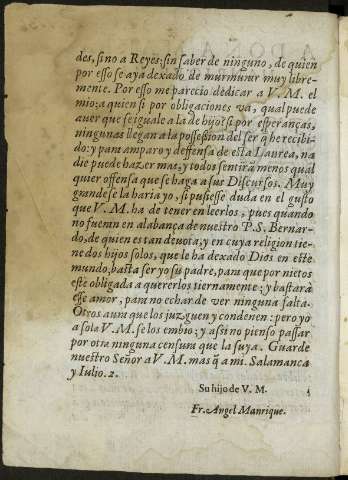 des, sino a Reyes; sin saber de ninguno, de quien
por esso se aya dexado de murmurar muy libre-
mente. Por esso me parecio dedicar a V. M. el
mio: a quien si por obligaciones va, qual puede
auer que se iguale a la de hijo? si por esperanças,
ningunas llegan a la possession del ser q̃ he recibi-
do: y para amparo y deffensa de esta Laurea, na
die puede hazer mas, y todos sentirã menos qual
quier offensa que se haga a sus Discursos. Muy
grande se la haria yo, si pusiesse duda en el gusto
que V. M. ha de tener en leerlos, pues quando
no fueran en alabança de nuestro P. S. Bernar-
do, de quien es tan deuota, y en cuya religion tie-
ne dos hijos solos, que le ha dexado Dios en este
mundo, basta ser yo su padre, para que por nietos
este obligada a quererlos tiernamente: y bastará
esse amor, para no echar de ver ninguna falta.
Otros aura que los juzguen y condenen: pero yo
a sola V. M. se los embio; y assi no pienso passar
por otra ninguna censura que la suya. Guarde
nuestro Señor a V. M. mas q̃ a mi. Salamanca
y Iulio. 2.
Su hijo de V. M.
Fr. Angel Manrique.